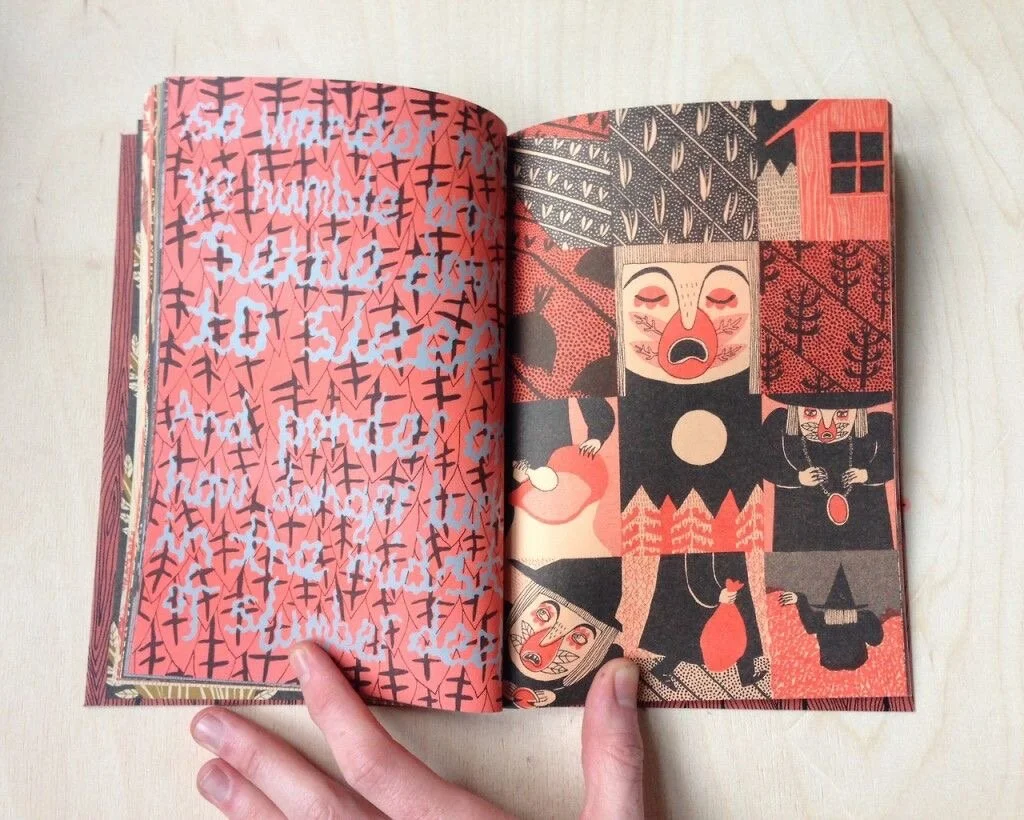 so wander
ye humble
Settle
to sleep
And ponder
how danger
in the midst
of slumber